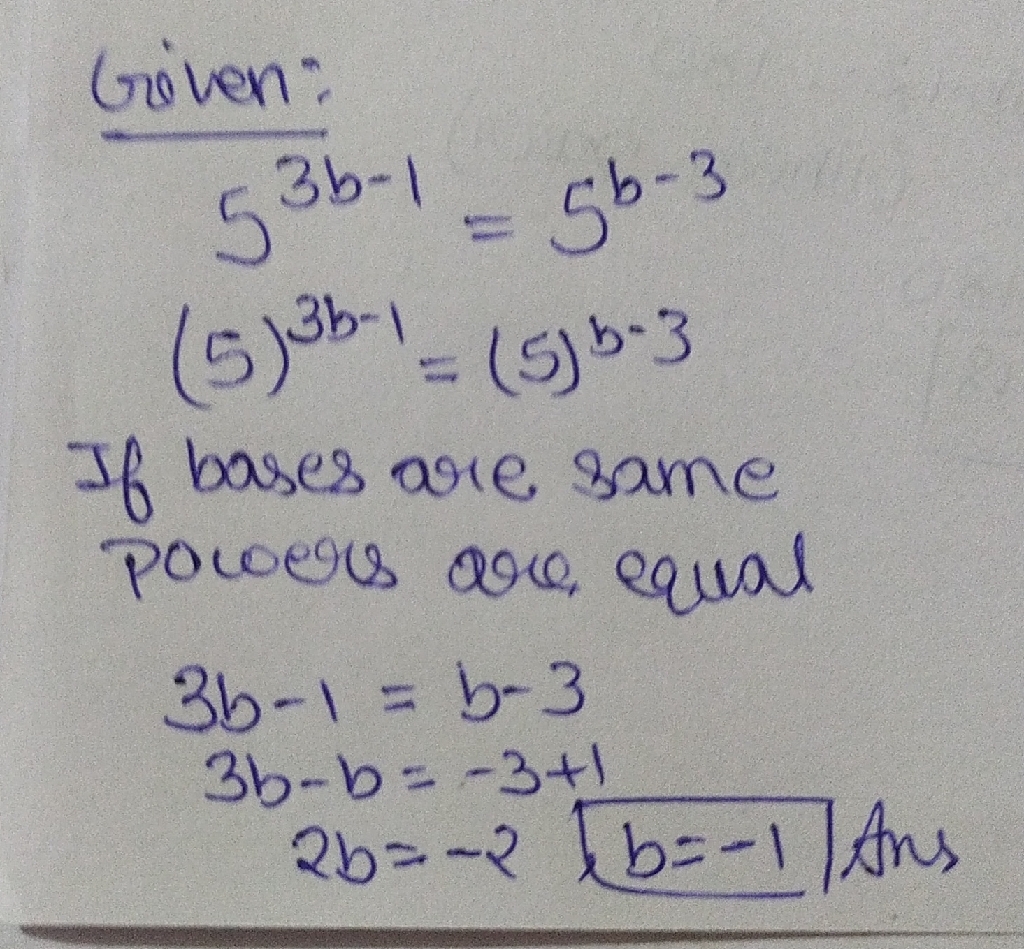 Given:
5^{3b-1} = 5^{b-3}
(5)^{3b-1} = (5)^{b-3}
If bases are same
powers are equal
3b-1 = b-3
3b-b = -3+1
2b = -2 b=-1 Ans